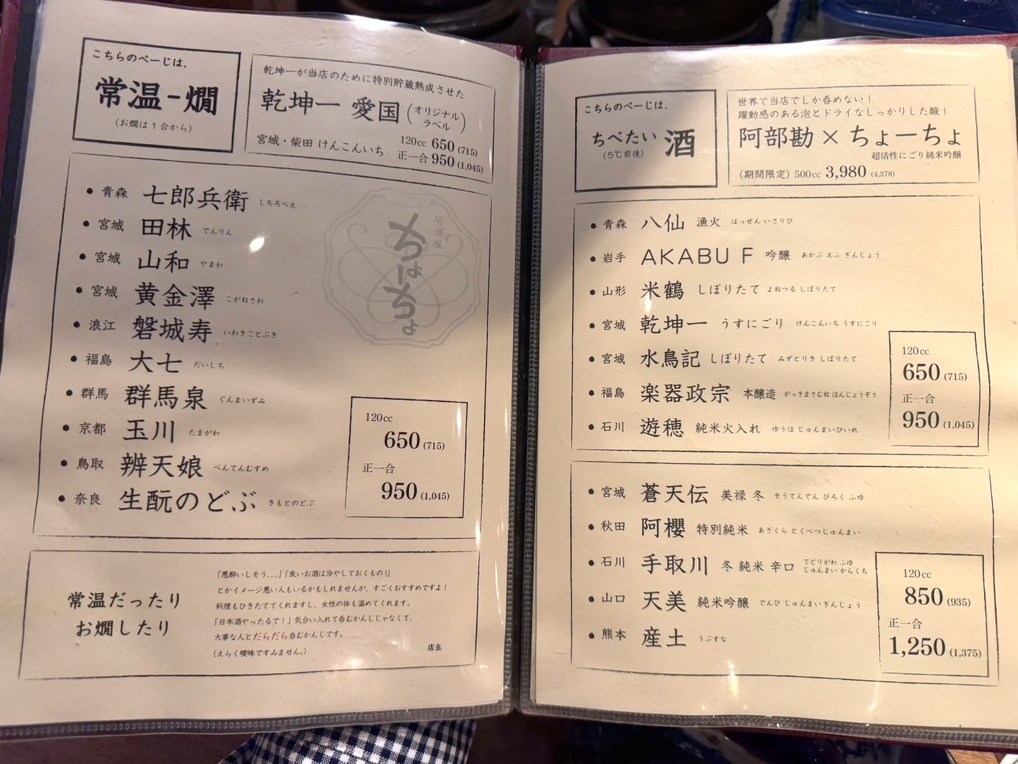 こちらのぺーじは、
常温-燗
(お燗は1合から)
乾坤一が当店のために特別貯蔵熟成させた
乾坤一 愛国 (オリジナルラベル)
宮城・柴田 けんこんいち
120cc 650 (715)
正一合 950 (1,045)
• 青森 七郎兵衛 しちろべえ
• 宮城 田林 でんりん
• 宮城 山和 やまわ
• 宮城 黄金澤 こがねさわ
• 浪江 磐城寿 いわきことぶき
• 福島 大七 だいしち
• 群馬 群馬泉 ぐんまいずみ
• 京都 玉川 たまがわ
• 鳥取 辨天娘 べんてんむすめ
• 奈良 生酛のどぶ きもとのどぶ
居酒屋
ちょーちょ
120cc
650 (715)
正一合
950 (1,045)
常温だったり
お燗したり
「悪酔いしそう...」「良いお酒は冷やしておくもの!」
とかイメージ悪い人もいるかもしれませんが、すごくおすすめですよ!
料理もひきたててくれますし、女性の体も温めてくれます。
「日本酒やったるで!」気合い入れて呑むかんじじゃなくて、
大事な人とだらだら呑むかんじです。
(えらく曖昧ですみません。)
店主
こちらのぺーじは、
ちべたい 酒
(5℃前後)
世界で当店でしか呑めない!
躍動感のある泡とドライなしっかりした酸!
阿部勘×ちょーちょ
超活性にごり純米吟醸
(期間限定) 500cc 3,980 (4,378)
• 青森 八仙 漁火 はっせん いさりび
• 岩手 AKABU F 吟醸 あかぶ えふ ぎんじょう
• 山形 米鶴 しぼりたて よねつる しぼりたて
• 宮城 乾坤一 うすにごり けんこんいち うすにごり
• 宮城 水鳥記 しぼりたて みずとりき しぼりたて
• 福島 楽器政宗 本醸造 がっきまさむね ほんじょうぞう
• 石川 遊穂 純米火入れ ゆうほ じゅんまいひいれ
120cc
650 (715)
正一合
950 (1,045)
• 宮城 蒼天伝 美禄 冬 そうてんでん びろく ふゆ
• 秋田 阿櫻 特別純米 あざくら とくべつじゅんまい
• 石川 手取川 冬 純米 辛口 てどりがわ ふゆ じゅんまい からくち
• 山口 天美 純米吟醸 てんび じゅんまいぎんじょう
• 熊本 産土 うぶすな
120cc
850 (935)
正一合
1,250 (1,375)